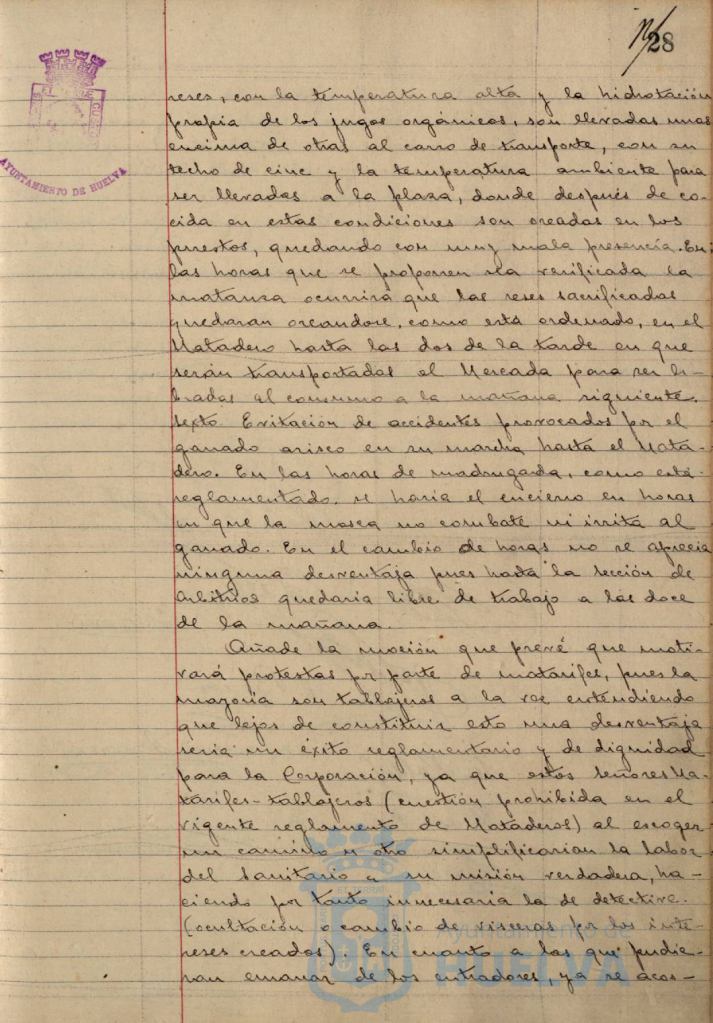 28
AYUNTAMIENTO DE HUELVA
reses, con la temperatura alta y la hidrotación
propia de los jugos orgánicos, son llevadas unas
encima de otras al carro de transporte, con su
techo de cinc y la temperatura ambiente para
ser llevadas a la plaza, donde después de co-
cida en estas condiciones son oreadas en los
puestos, quedando con muy mala presencia. En
las horas que se proponen sea verificada la
matanza ocurrirá que las reses sacrificadas
quedaran oreandose, como está ordenado, en el
Matadero hasta las dos de la tarde en que
serán transportadas al Mercado para ser li-
bradas al consumo a la mañana siguiente.
Sexto. Evitación de accidentes provocados por el
ganado arisco en su marcha hasta el Mata-
dero. En las horas de madrugada, como está
reglamentado, se haria el encierro en horas
en que la mosca no combate ni irrita al
ganado. En el cambio de horas no se aprecia
ninguna desventaja pues hasta la sección de
Arbitrios quedaria libre de trabajo a las doce
de la mañana.
Añade la moción que prevé que moti-
vará protestas por parte de matarifes, pues la
mayoria son tablajeros a la vez entendiendo
que lejos de constituir esto una desventaja
seria un éxito reglamentario y de dignidad
para la Corporación, ya que estos señores Ma-
tarifes-tablajeros (cuestión prohibida en el
vigente reglamento de Mataderos) al escoger
un camino u otro simplificarian la labor
del Sanitario a su misión verdadera, ha-
ciendo por tanto innecesaria la de detective.
(ocultación o cambio de visceras por los inte-
reses creados). En cuanto a las que pudie-
ran emanar de los entradores, ya se acos-
Ayuntamiento de
HUELVA